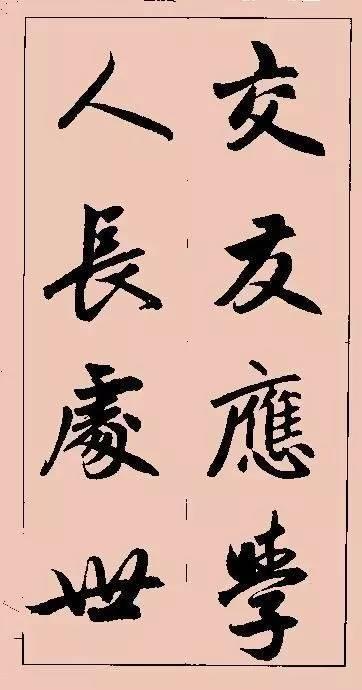 交友應學
人長處世